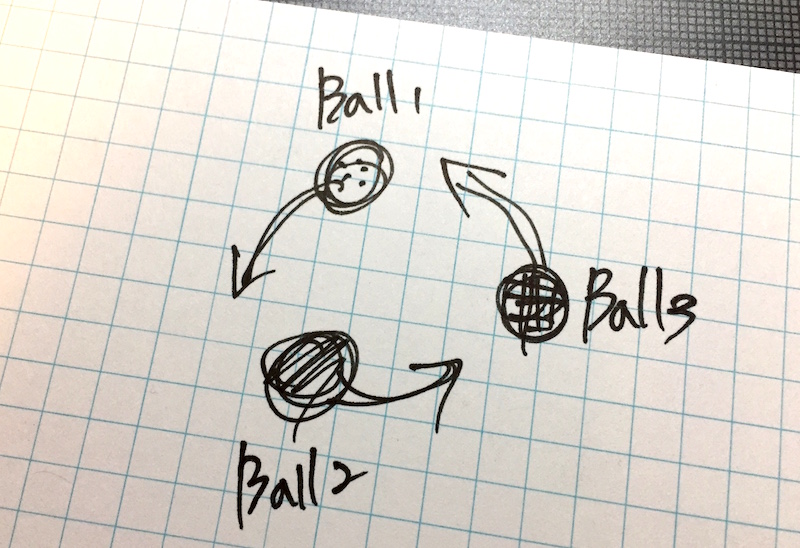 Ball 1
Ball 3
Ball 2